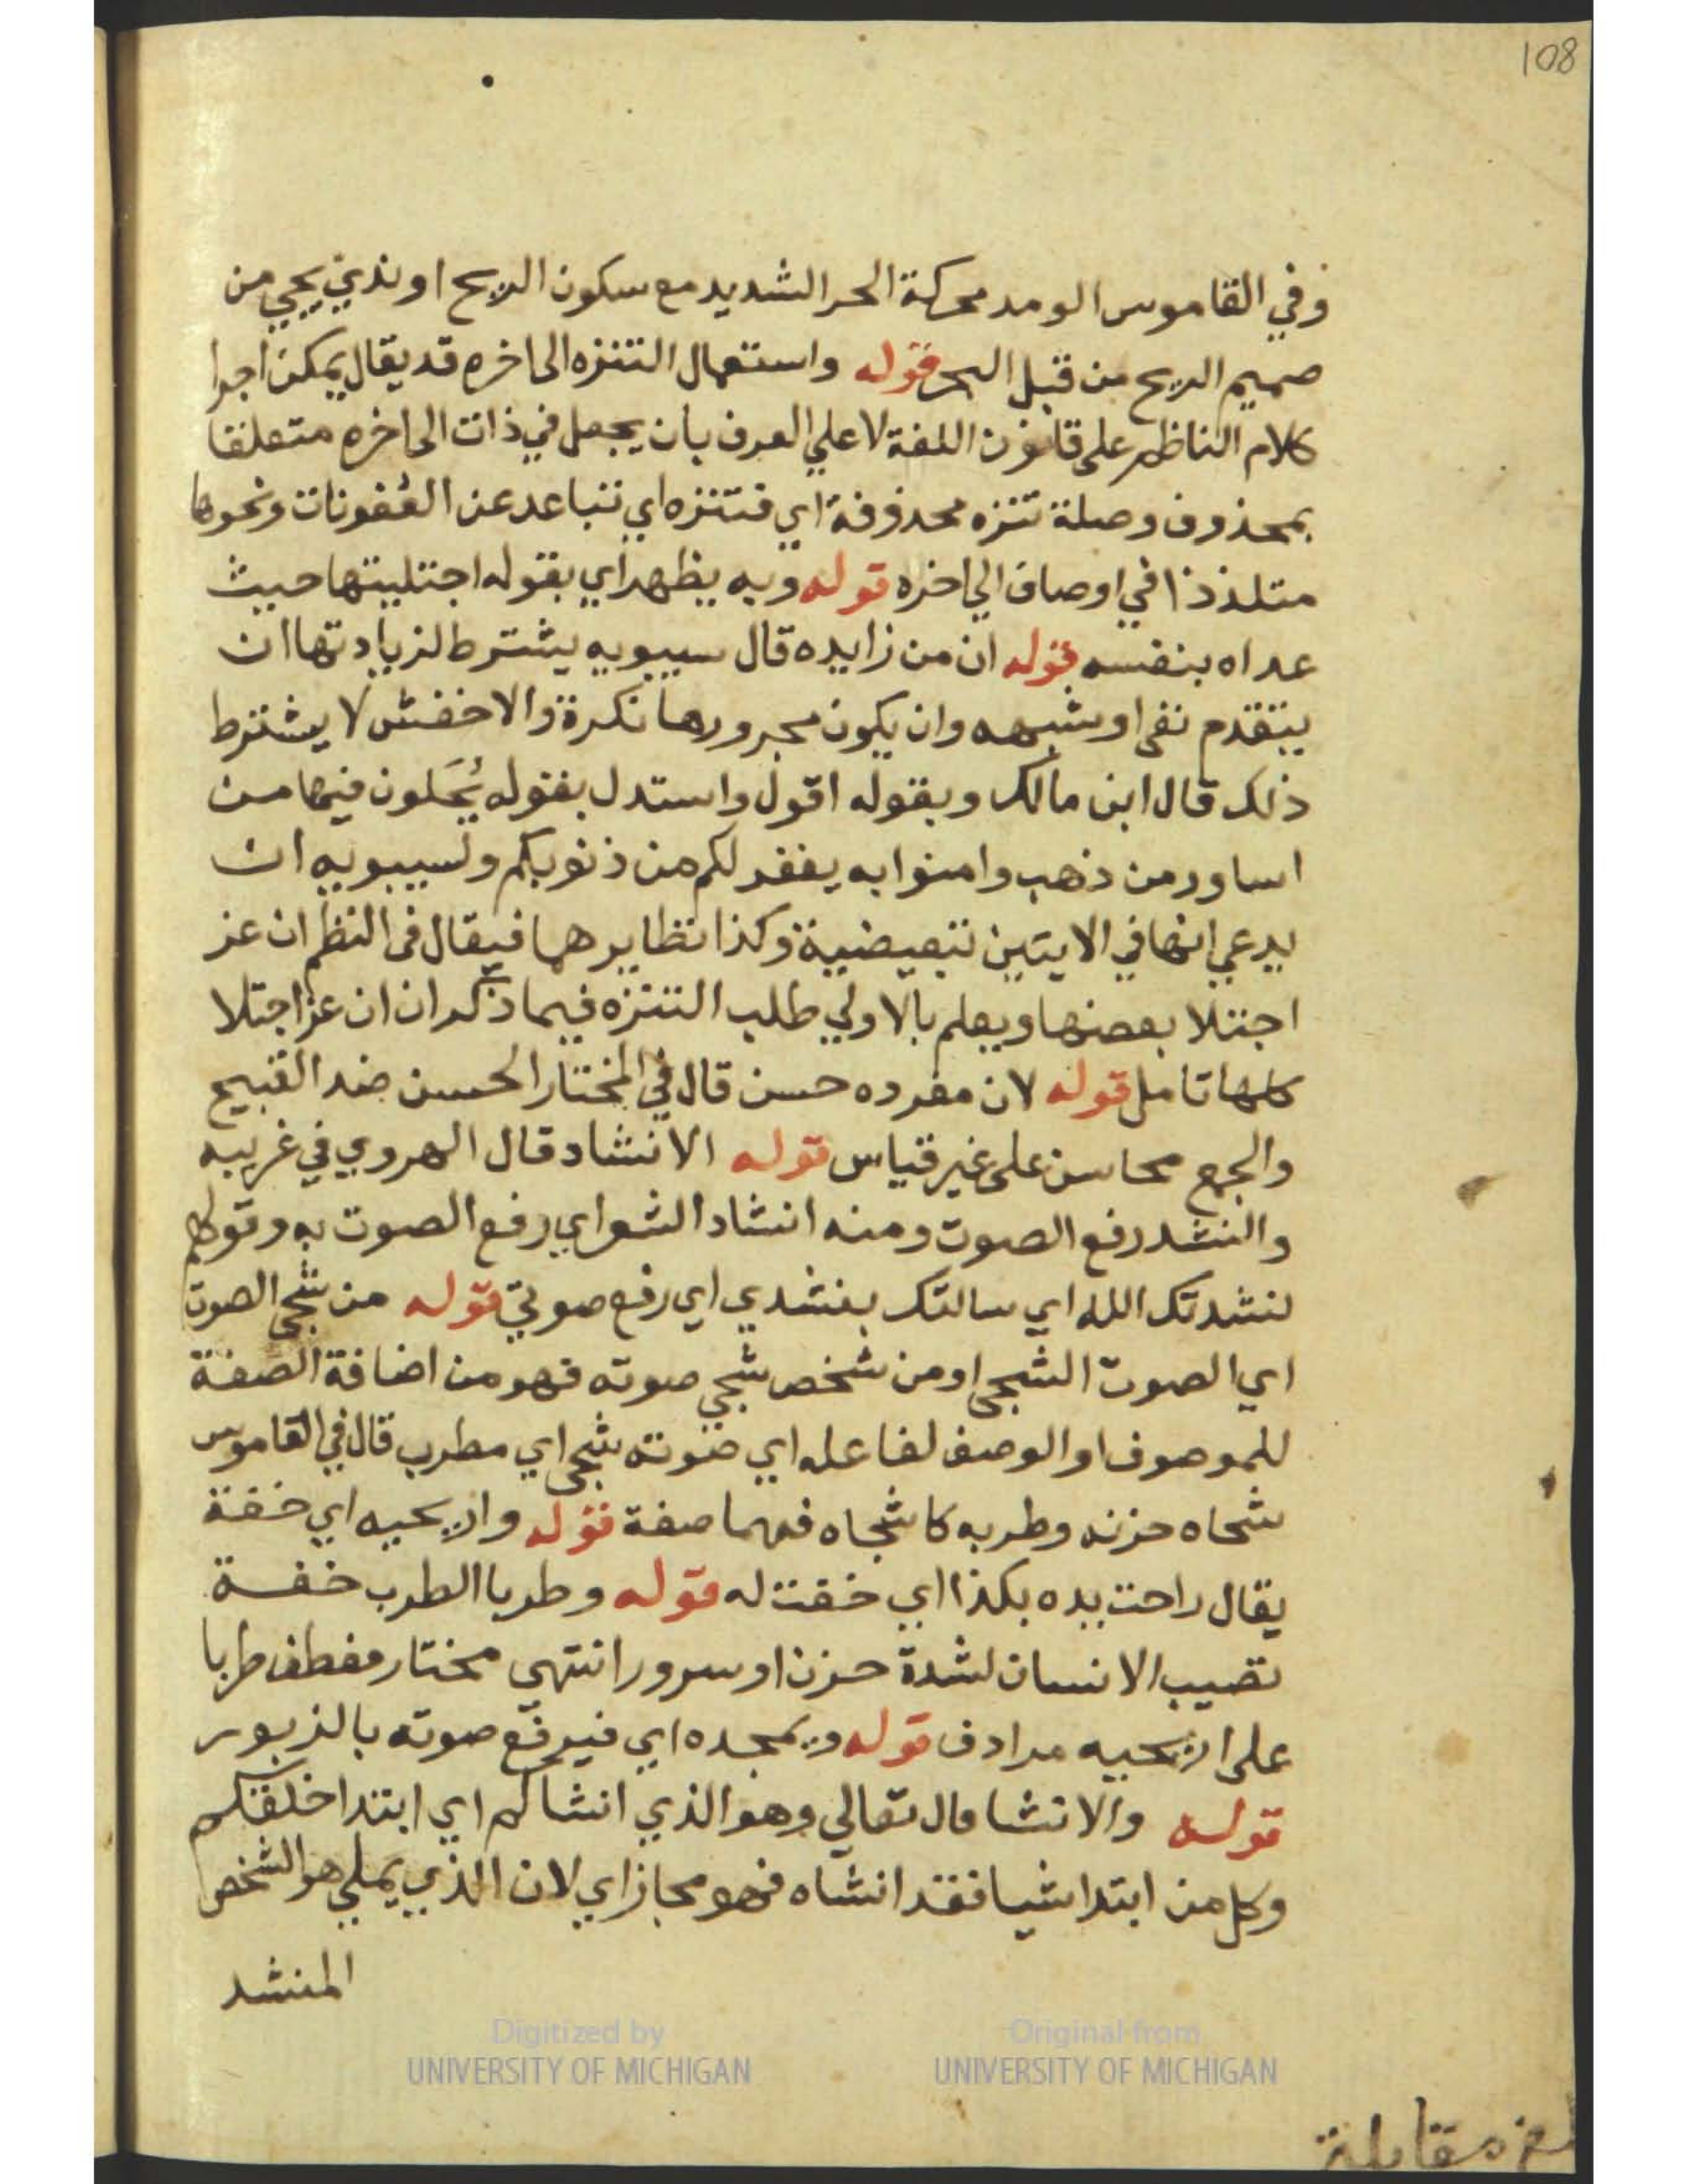 108
وفي القاموس الومد محركة الحر الشديد مع سكون الريح او ندي يجي من
صميم الريح من قبل البحر قوله واستعمال التنزه الى اخره قد يقال يمكن اجرا
كلام الناظر على قانون اللغة لا علي العرف بان يجعل في ذات الى اخره متعلقا
بمحذوف وصلة تنزه محذوفة اي فتنزه اي تباعد عن العفونات ونحوها
متلذذا في اوصاف الي اخره قوله وبه يظهر اي بقوله اجتليتها حيث
عداه بنفسه قوله ان من زايده قال سيبويه يشترط لزيادتها ان
يتقدم نفى او شبهه وان يكون مجرورها نكرة والاخفش لا يشترط
ذلك قال ابن مالك وبقوله اقول واستدل بقوله يُحَلون فيها من
اساور من ذهب وامنوا به يغفر لكم من ذنوبكم ولسيبويه ان
يدعي انها في الايتين تبعيضية وكذا نظايرهما فيقال فى النظم ان عز
اجتلا بعضها ويعلم بالاولي طلب التنزه فيما ذكر ان ان عز اجتلا
كلها تامل قوله لان مفرده حسن قال في المختار الحسن ضد القبيح
والجمع محاسن على غير قياس قوله الانشاد قال الهروي في غريبه
والنشد رفع الصوت ومنه انشاد الشعر اي رفع الصوت به وقولهم
نشدتك الله اي سالتك بنشدي اي رفع صوتي قوله من شجى الصوت
اي الصوت الشجى او من شخص شجي صوته فهو من اضافة الصفة
للموصوف او الوصف لفاعله اي صوته شجى اي مطرب قال في القاموس
شجاه حزنه وطربه كاشجاه فهما صفة قوله واريحيه اي خفة
يقال راحت يده بكذا اي خفت له قوله وطربا الطرب خفة
تصيب الانسان لشدة حزن او سرور انتهى مختار فعطف طربا
على اريحيه مرادف قوله ويمجده اي فيرفع صوته بالزبور
قوله والانشا قال تعالي وهو الذي انشاكم اي ابتدا خلقكم
وكل من ابتدا شيا فقد انشاه فهو مجاز اي لان الذي يملي هو الشخص
المنشد
مقابلة
Digitized by
UNIVERSITY OF MICHIGAN
Original from
UNIVERSITY OF MICHIGAN